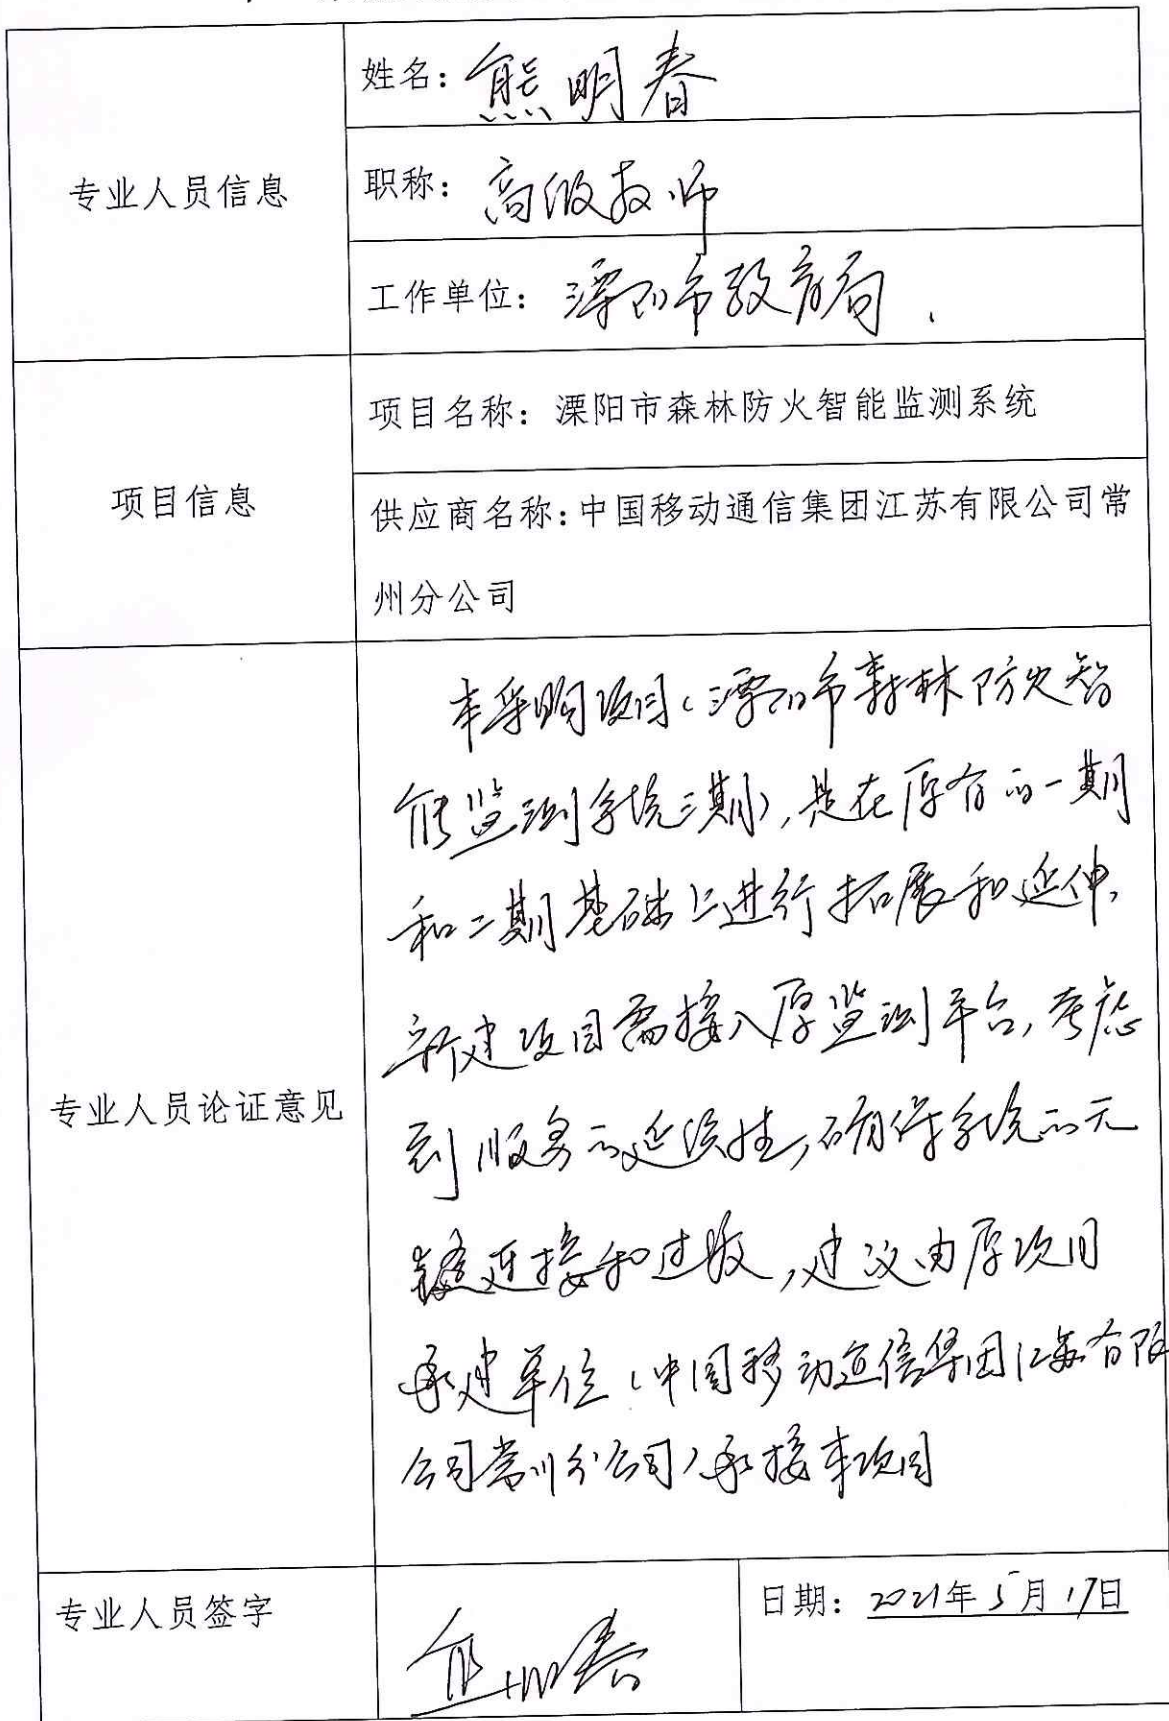 专业人员信息
姓名：熊明春
职称：高级教师
工作单位：溧阳市教育局.
项目信息
项目名称：溧阳市森林防火智能监测系统
供应商名称：中国移动通信集团江苏有限公司常
州分公司
专业人员论证意见
本采购项目（溧阳市森林防火智
能监测系统三期），是在原有的一期
和二期基础上进行拓展和延伸，
新建项目需接入原监测平台，考虑
到服务的延续性，确保系统的无
缝连接和过渡，建议由原项目
承建单位（中国移动通信集团江苏有限
公司常州分公司）承接本项目
专业人员签字
熊明春
日期：2021年5月17日